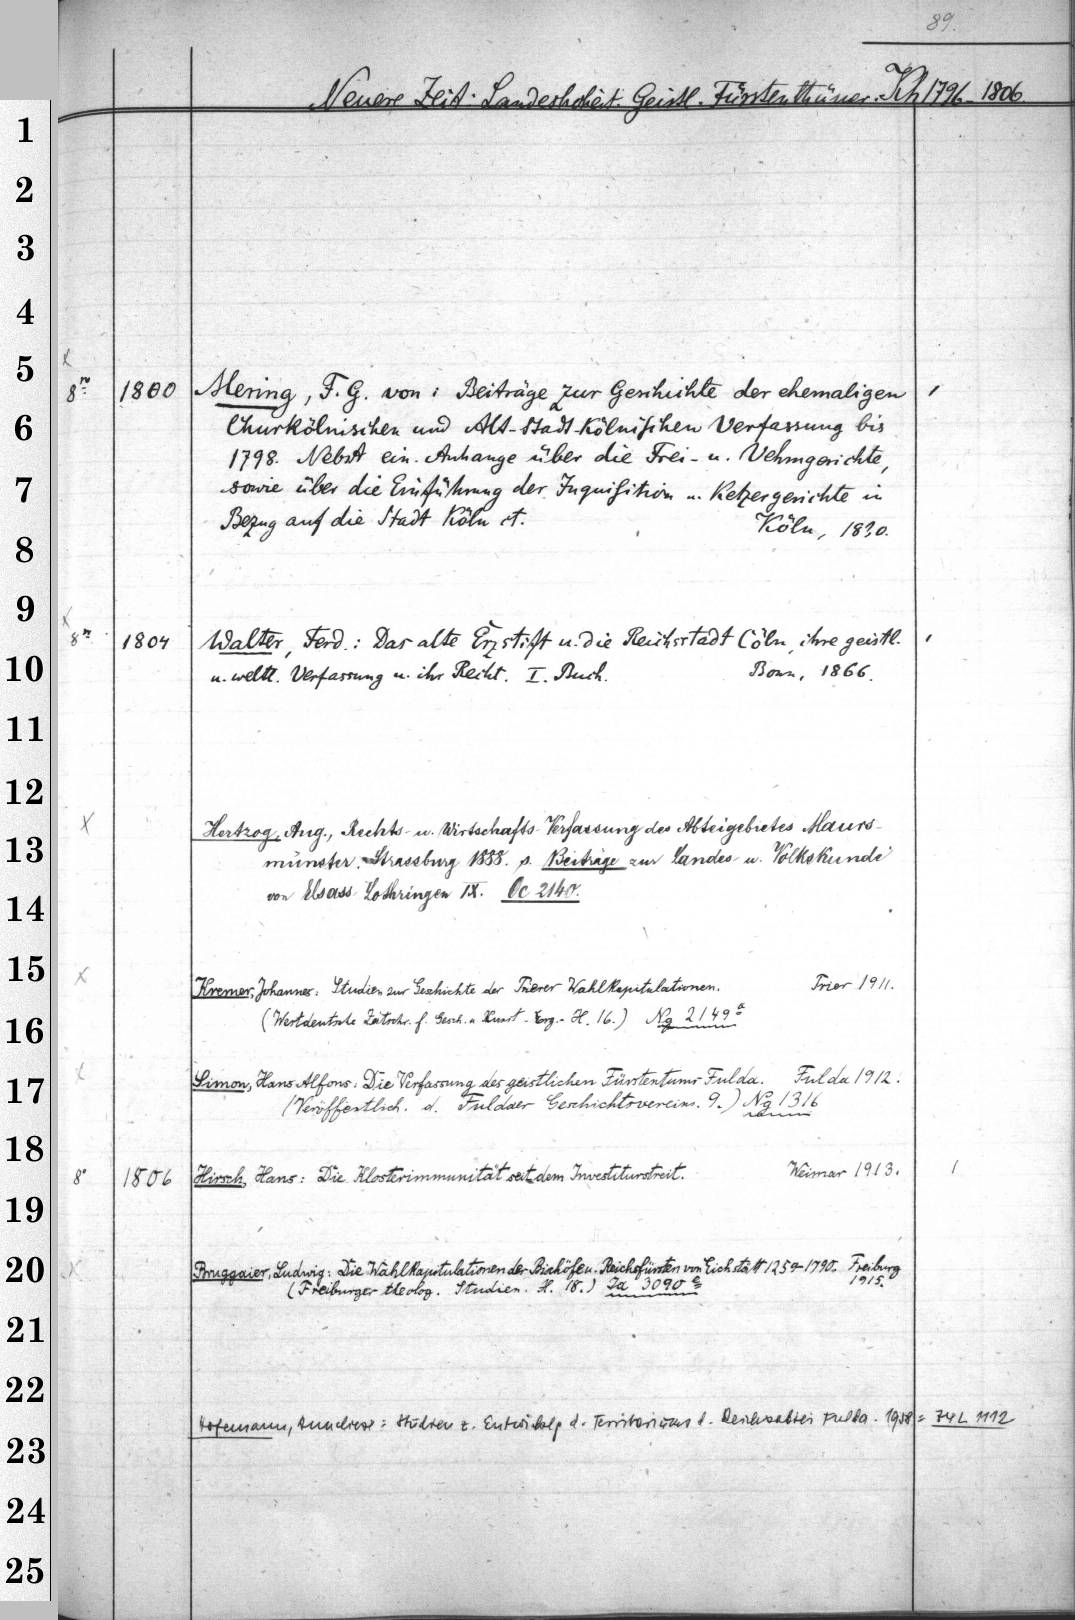 89.
Neuere Zeit: Landeshoheit. Geistl. Fürstenthümer. Kh 1796-1806.
1
2
3
4
5
x
8º 1800 Mering, F. G. von: Beiträge zur Geschichte der ehemaligen
6
Churkölnischen und Alt-Stadt-Kölnischen Verfassung bis
1798. Nebst ein. Anhange über die Frei- u. Vehmgerichte,
7
sowie über die Einführung der Inquisition u. Ketzergerichte in
Bezug auf die Stadt Köln Köln, 1830.
8
9
x
8º 1804 Walter, Ferd.: Das alte Erzstift u. die Reichsstadt Cöln, ihre geistl.
10
u. weltl. Verfassung u. ihr Recht. I. Buch. Bonn, 1866.
11
12
x Hertzog, Aug., Rechts- u. Wirtschafts-Verfassung des Abteigebietes Maurs-
13
münster. Strassburg 1888. s. Beiträge zur Landes- u. Volkskunde
von Elsass-Lothringen IX. Oc 2140.
14
15
x Kremer, Johannes: Studien zur Geschichte der Trierer Wahlkapitulationen. Trier 1911.
16
(Westdeutsche Zeitschr. f. Gesch. u. Kunst. Erg.- H. 16.) Ng 2149ª
x
17
Simon, Hans Alfons: Die Verfassung des geistlichen Fürstentums Fulda. Fulda 1912.
(Veröffentlich. d. Fuldaer Geschichtsvereins. 9.) Ng 1316
18
8º 1806 Hirsch, Hans: Die Klosterimmunität seit dem Investiturstreit. Weimar 1913. 1
19
20
x Bruggaier, Ludwig: Die Wahlkapitulationen der Bischöfe u. Reichsfürsten von Eichstätt 1259-1790. Freiburg
1915.
(Freiburger theolog. Studien. H. 18.) 3090
21
22
Hofemann, Anneliese: Studien z. Entwicklg d. Territoriums d. Reichsabtei Fulda. 1958 = 74 L 1112
23
24
25